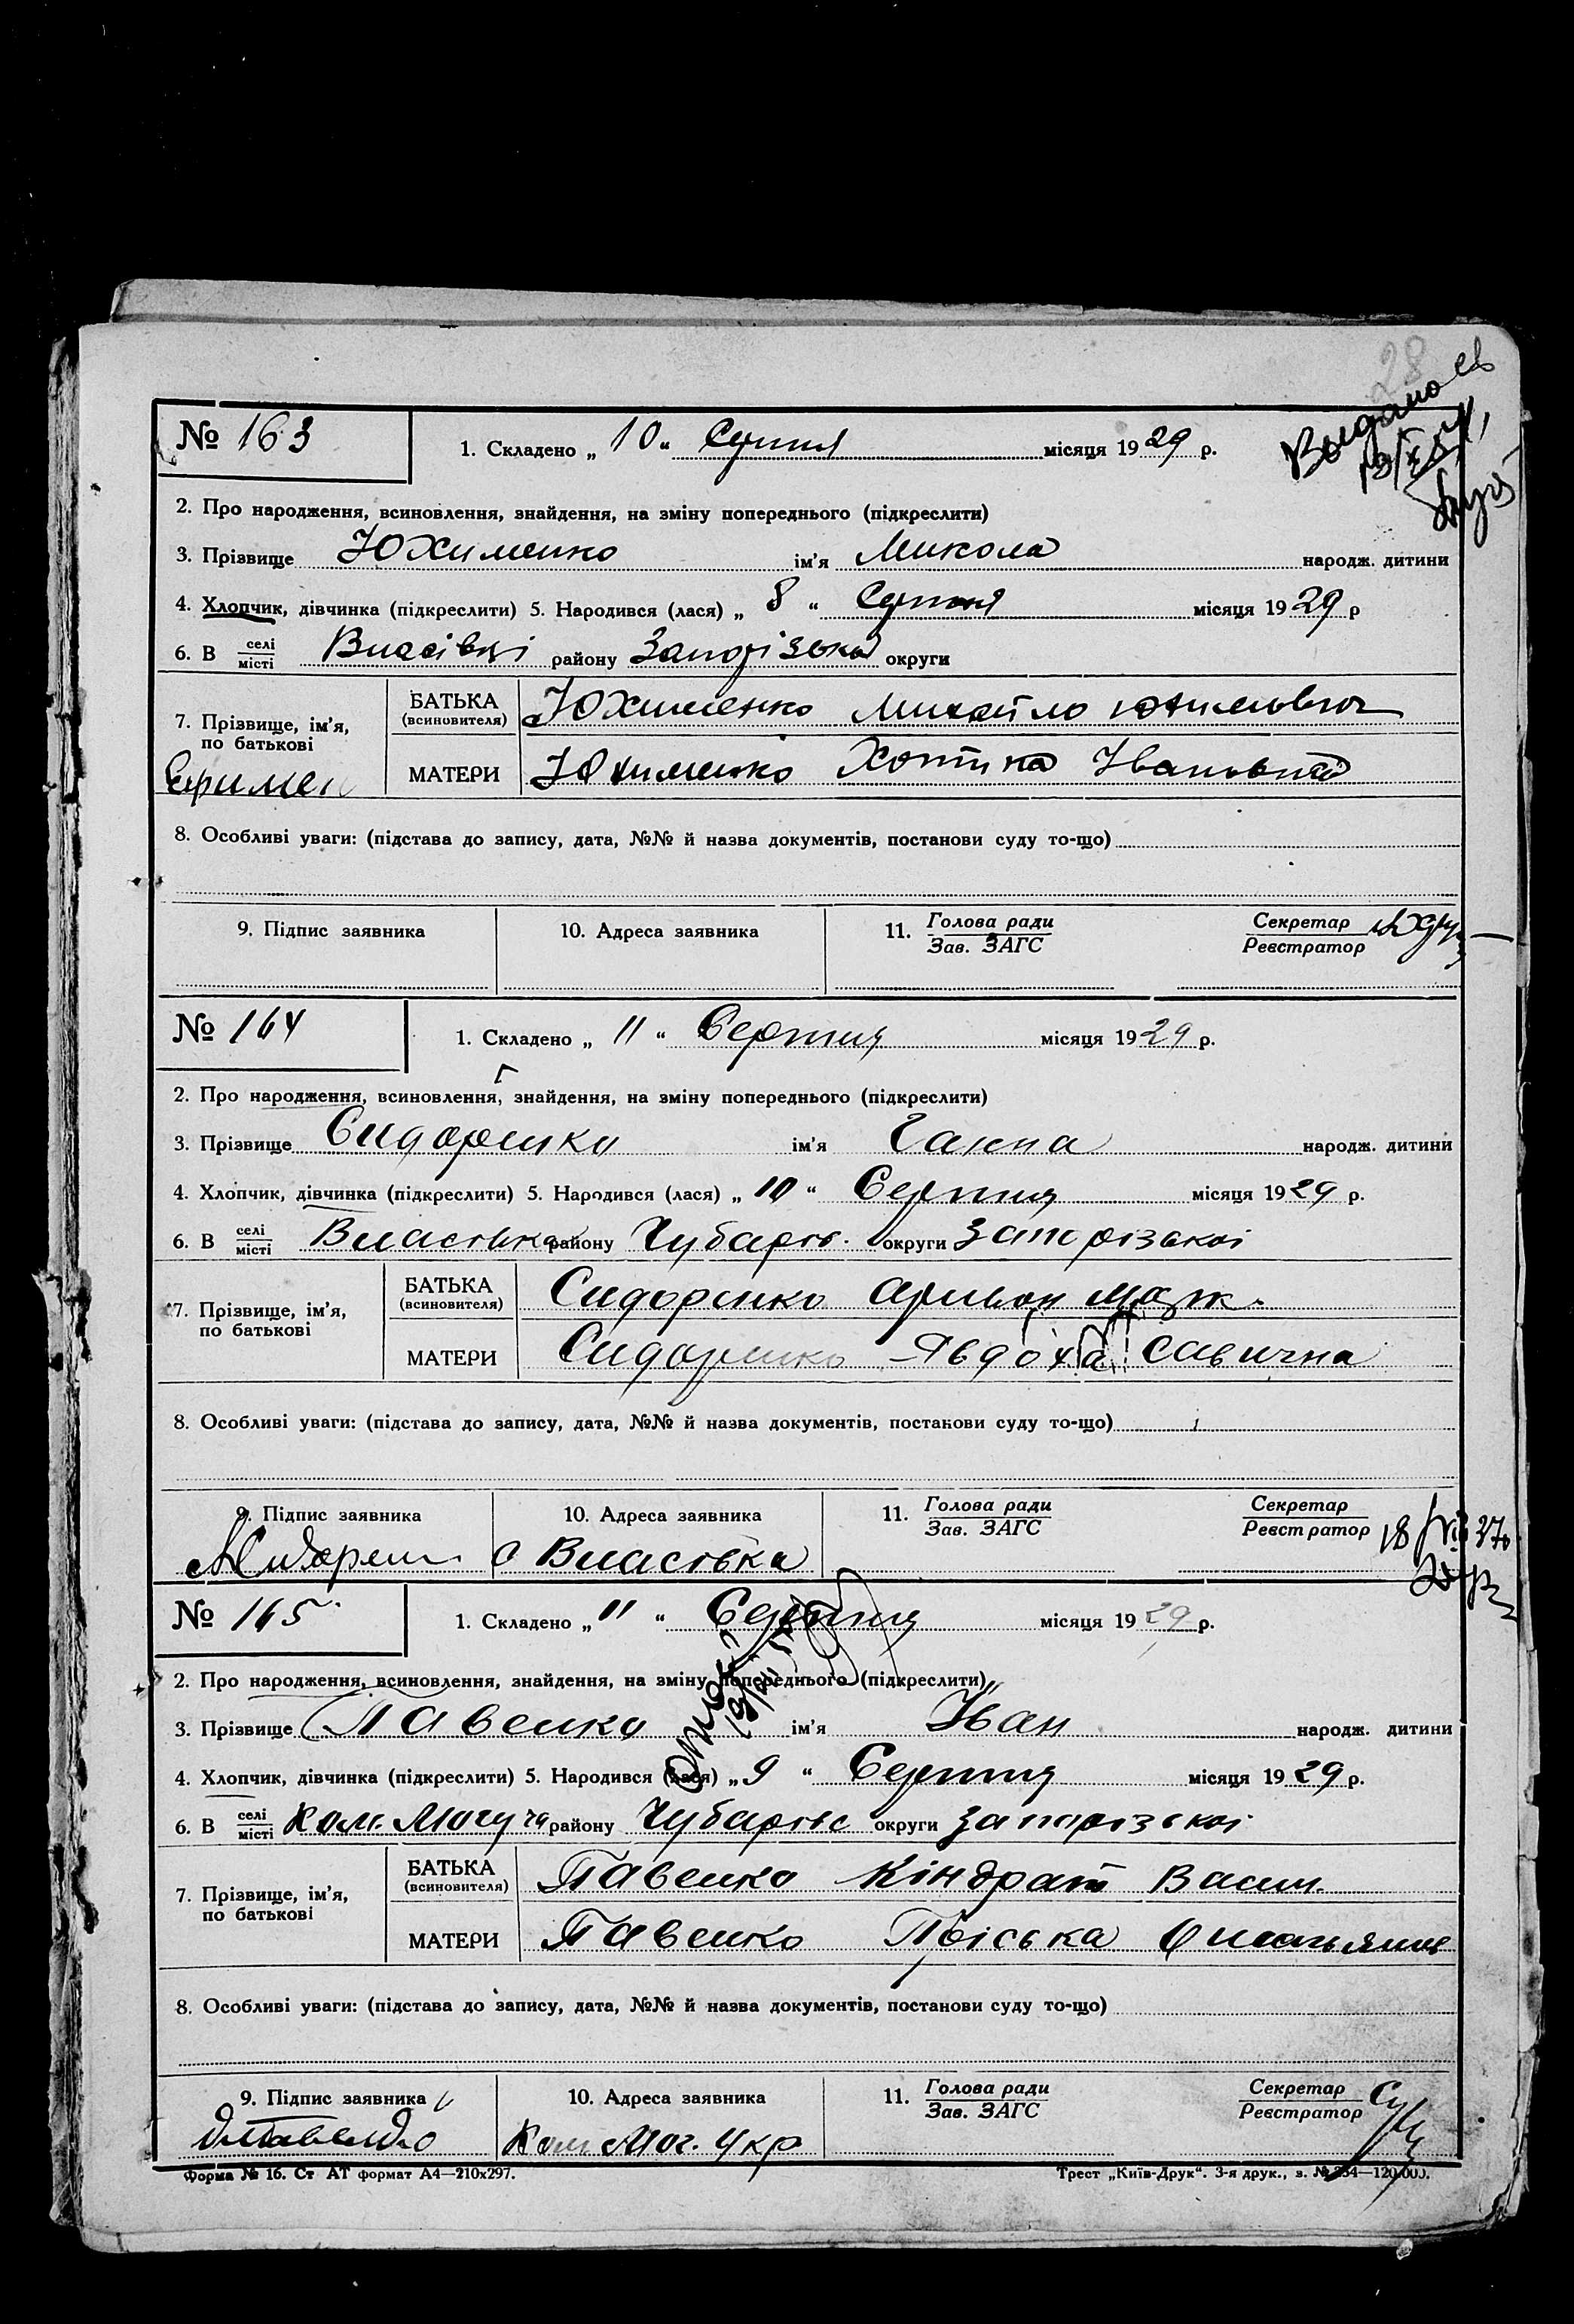 28
Выдано св
№ 163
1. Складено „ 10 “ Серпня місяця 1929 р.
2. Про народження, всиновлення, знайдення, на зміну попереднього (підкреслити)
3. Прізвище Юхименко ім'я Микола народж. дитини
4. Хлопчик, дівчинка (підкреслити) 5. Народився (лася) „ 8 “ Серпня місяця 1929 р
6. В селі місті Власівці району Запорізька округи
7. Прізвище, ім'я, по батькові
БАТЬКА (всиновителя) Юхименко Михайло Юхимович
МАТЕРИ Юхименко Хотина Івановна
Ефимен
8. Особливі уваги: (підстава до запису, дата, №№ й назва документів, постанови суду то-що)
9. Підпис заявника
10. Адреса заявника
11. Голова ради Зав. ЗАГС
Секретар Реєстратор
№ 164
1. Складено „ 11 “ Серпня місяця 1929 р.
2. Про народження, всиновлення, знайдення, на зміну попереднього (підкреслити)
3. Прізвище Сидоренко ім'я Ганна народж. дитини
4. Хлопчик, дівчинка (підкреслити) 5. Народився (лася) „ 10 “ Серпня місяця 1929 р.
6. В селі місті Власівка району Чубарів. округи Запорізької
7. Прізвище, ім'я, по батькові
БАТЬКА (всиновителя) Сидоренко
МАТЕРИ Сидоренко Явдоха Савична
8. Особливі уваги: (підстава до запису, дата, №№ й назва документів, постанови суду то-що)
9. Підпис заявника
10. Адреса заявника
11. Голова ради Зав. ЗАГС
Секретар Реєстратор
с Власівка
№ 165
1. Складено „ 11 “ Серпня місяця 1929 р.
2. Про народження, всиновлення, знайдення, на зміну попереднього (підкреслити)
3. Прізвище Павенко ім'я Іван народж. дитини
4. Хлопчик, дівчинка (підкреслити) 5. Народився (лася) „ 9 “ Серпня місяця 1929 р.
6. В селі місті Ком. Могуча району Чубарівс округи Запорізької
7. Прізвище, ім'я, по батькові
БАТЬКА (всиновителя) Павенко Кіндрат Васил.
МАТЕРИ Павенко Пріська
8. Особливі уваги: (підстава до запису, дата, №№ й назва документів, постанови суду то-що)
9. Підпис заявника
10. Адреса заявника
11. Голова ради Зав. ЗАГС
Секретар Реєстратор
Ком Мог. Укр
Форма № 16. Ст АТ формат А4—210х297.
Трест „Київ-Друк“. 3-я друк., з. № 354—120.000.